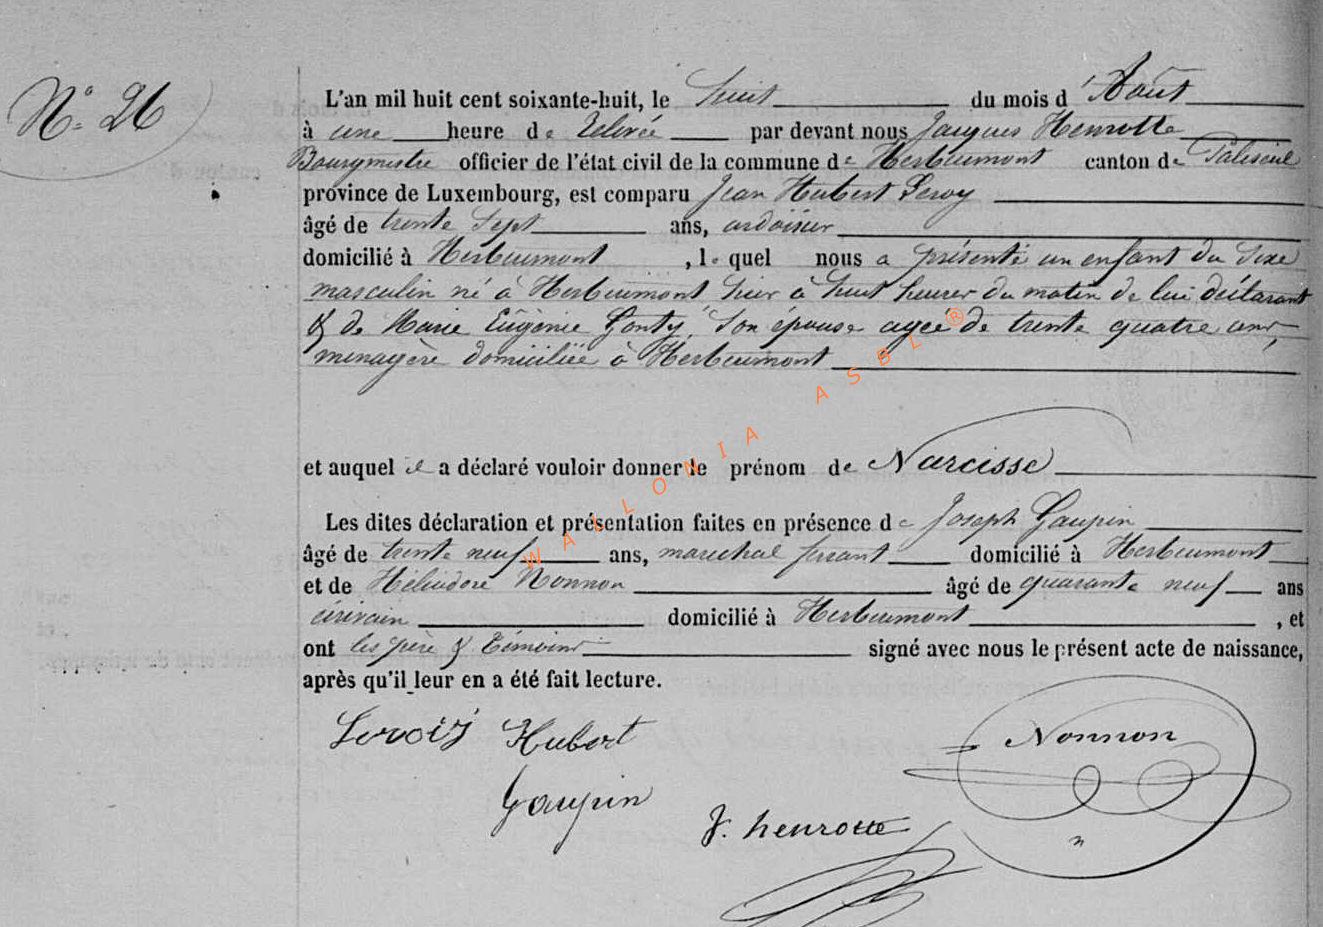 N° 26
L'an mil huit cent soixante-huit, le huit du mois d'Août
à une heure de relevée par devant nous Jacques Henrotte
Bourgmestre officier de l'état civil de la commune de Herbeumont canton de Paliseul
province de Luxembourg, est comparu Jean Hubert Leroy
âgé de trente sept ans, ardoisier
domicilié à Herbeumont, lequel nous a présenté un enfant du sexe
masculin né à Herbeumont hier à huit heures du matin de lui déclarant
& de Marie Eugénie Gonty, son épouse agée de trente quatre ans,
menagère domiciliée à Herbeumont
et auquel il a déclaré vouloir donner le prénom de Narcisse
Les dites déclaration et présentation faites en présence de Joseph Goupin
âgé de trente neuf ans, marechal ferrant domicilié à Herbeumont
et de Héliodore Nonnon âgé de quarante neuf ans
écrivain domicilié à Herbeumont, et
ont les père & témoins signé avec nous le présent acte de naissance,
après qu'il leur en a été fait lecture.
Leroy Hubert
Nonnon
Goupin
J. henrotte
WALLONIA ASBL ®